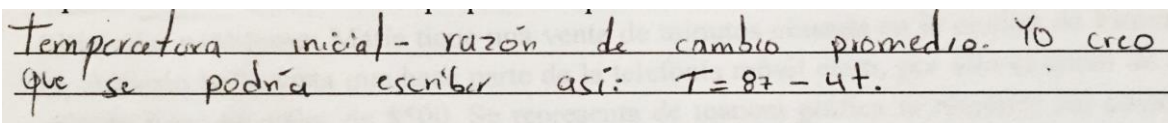 Temperatura inicial - razón de cambio promedio. Yo creo
que se podría escribir así: T = 87 - 4t.